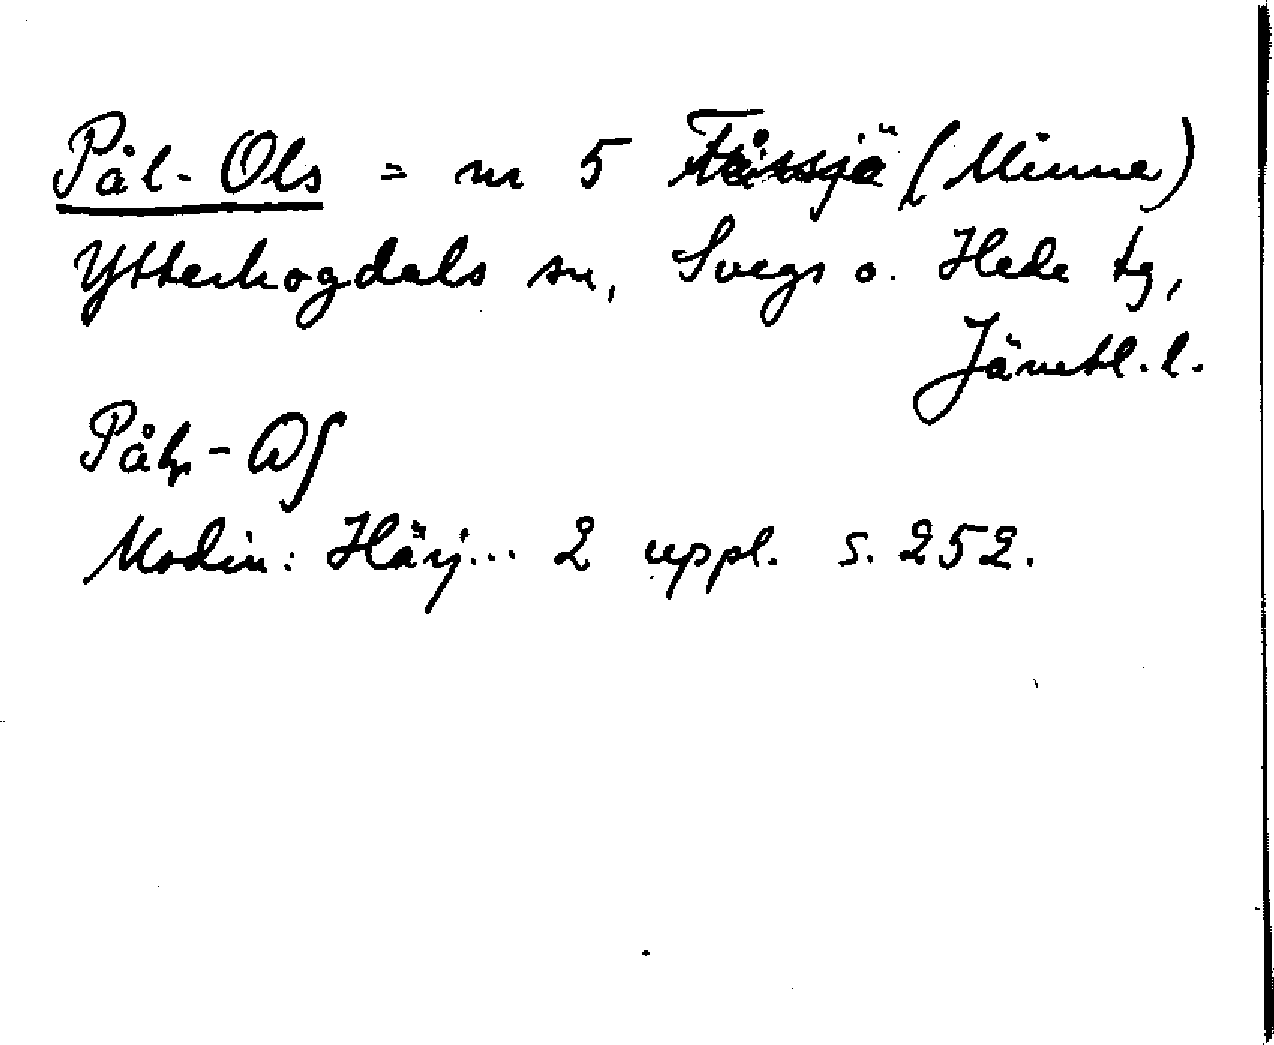 Pål-Ols = nr 5 Fåssjö (Minne)
Ytterhogdals sn, Svegs o. Hede tg,
Jämtl. l.
Modin: Härj... 2 uppl. s. 252.